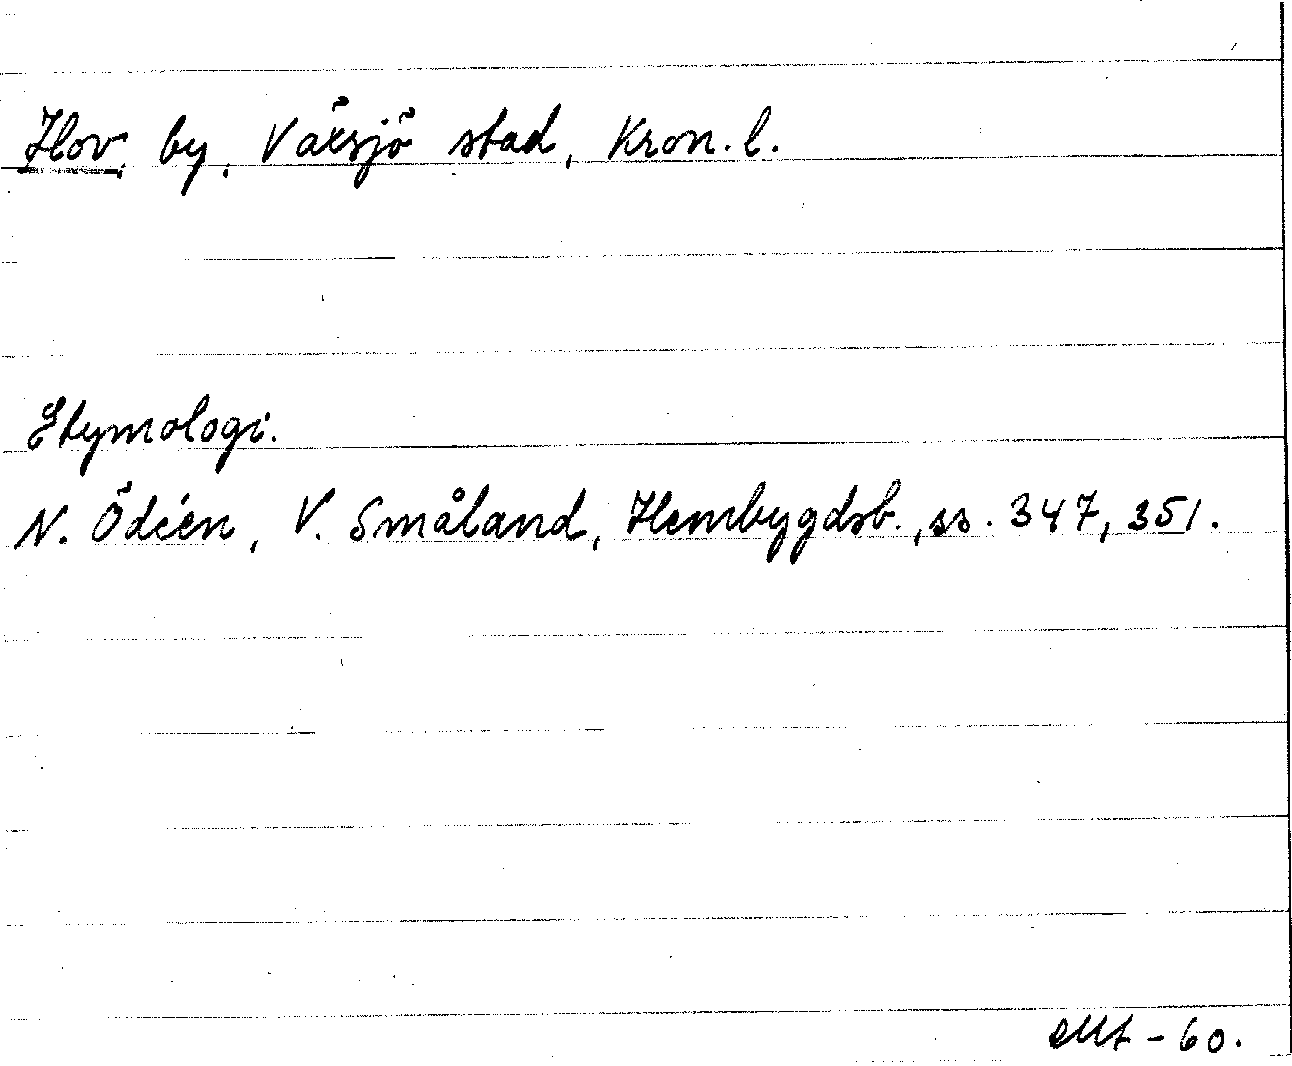 Hov, by, Växsjö stad, Kron. l.
Etymologi.
N. Ödéen, V. Småland, Hembygdsb., ss. 347, 351.
-60.